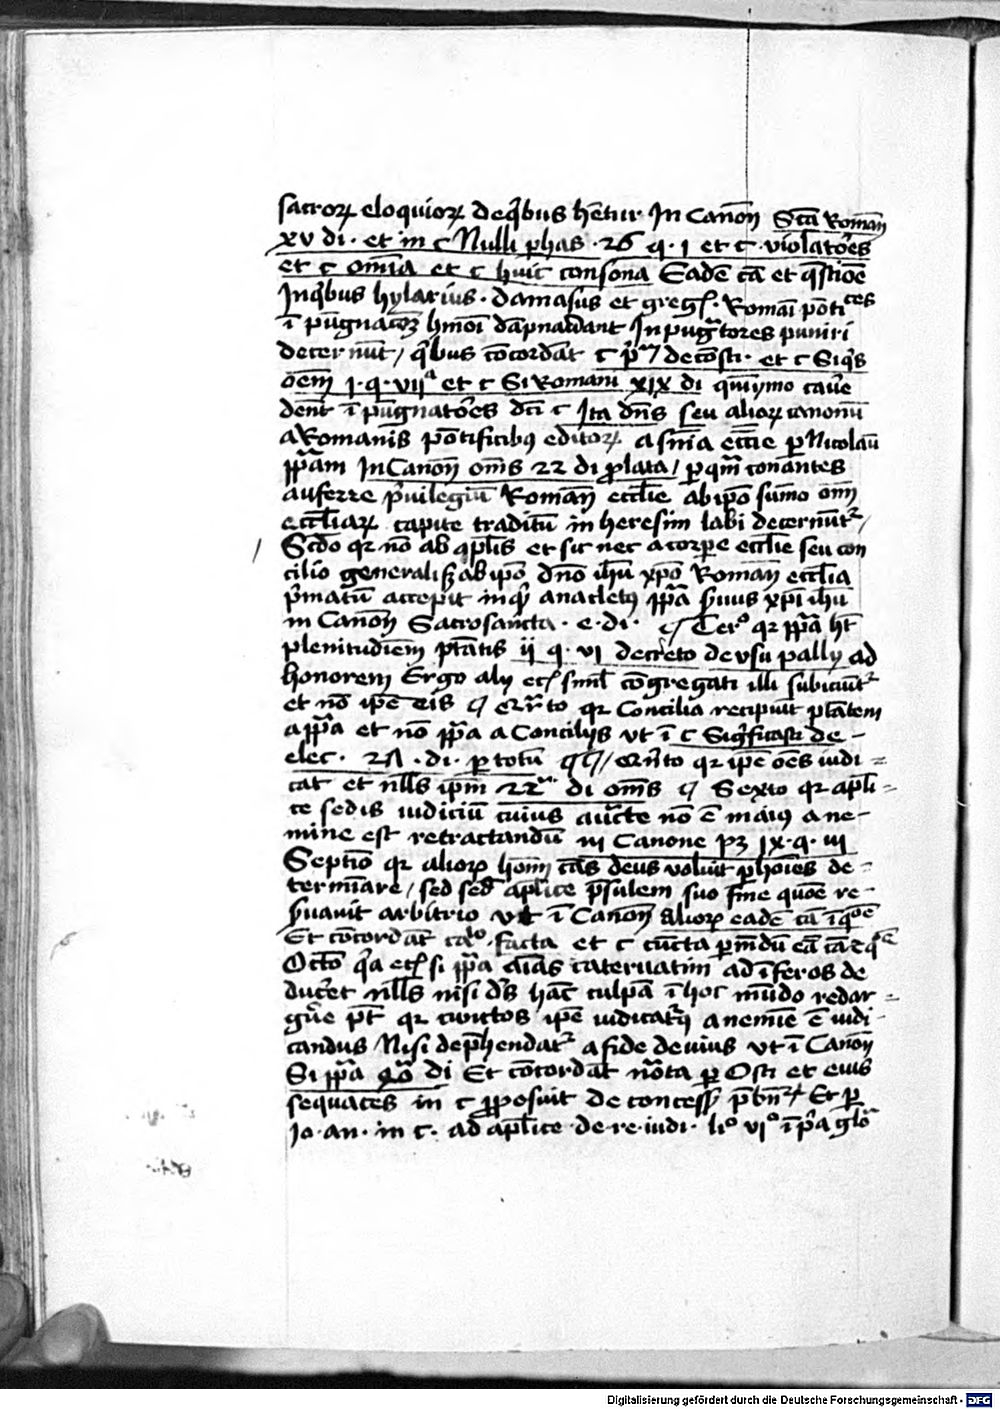 sacroꝝ eloquioꝝ de qͥbus hēter In Canon̄ Scā Roman̄
xv di · et in c Nulli ꝓhas · 26 q · 1 et c · violatōes
et c om̄ia et c huic consona Eadē cā et q̄stiōē
Inqͥbus hylarius · damasus et greg · Romāi pōtiᶜᵉˢ
ī pugnatoꝝ hmōi dāpnabant Inpugᵃtores puniri
decernūt / qͥbus cōcordāt c pͥ decōsti · et c Siqͥs
oēm 1 · q · viiᵃ et c Si Romani xix di qͥnymo cauē
dent ī pugnatōes dcī c Ita dn̄s seu alioꝝ canonū
a Romanis pōtificibꝰ editoꝝ a sn̄ia ecc̄ie ꝑ Nicolaū
pp̄am In Canon̄ om̄s 22 di ꝓlata / ꝑ quā conantes
auferre pͥuilegiū Roman̄ eccl̄ie ab ip̄o sūmo om̄
eccl̄iaꝝ capite traditū in heresim labi decernūtʳ /
Scd̄o qꝛ nō ab apl̄is et sic nec a corpe eccl̄ie seu con
cilio generali sꝫ ab ip̄o dn̄o ih̄u xp̄o Roman̄ eccl̄ia
pͥmatū accepit inqͥ anacletꝰ pp̄a suus xp̄i ih̄u
in Canon̄ Sacrosancta · e · di · ¶ Terᵒ qꝛ pp̄a ht̄
plenitudiēm ptātis ii q · vi decreto de vsu pallij ad
honorem Ergo alij ec̄ siml̄ cōgregati illi subiciūtʳ
et nō ip̄e eis ¶ qrͣto qꝛ Concilia recipiūt ptātem
a pp̄a et nō pp̄a a Concilijs vt ī c Sigͥficasti de –
elec · 2 · di · ꝑ totū ¶ qn̄to qꝛ ip̄e oēs iudi =
cat et nll̄s ip̄m 22 di om̄s ¶ Sexto qꝛ apl̄i =
ce sedis iudiciū cuius auc̄te nō ē maiꝰ a ne –
mine est retractandū in Canone pꝫ ix · q · iii
Septīo qꝛ alioꝝ hoīm cās deus voluit ꝑ hoīes de =
termīare / sed sed̄ ap̄lice p̄sulem suo sīne quōe re –
suauit arbitrio vt ī Canon̄ alioꝝ eadē cā ī qᵒⁿᵉ
Et cōcordāt cᵃᵒ facta et c cūcta ꝑ mūdū eā cā et qᵉ
Octō qͥa ec̄ si pp̄a aīas cateruatim ad īferos de
ducet nll̄s nisi d̄s hāc culpā ī hoc mūdo redar =
guē pt̄ qꝛ cunctos ip̄e iudicatʳꝰ a nemīe ē iudi –
candus Nisi dep̄hendatʳ a fide deuius vt ī Canon̄
Si pp̄a di Et cōcordāt nōta ꝑ Osti et eius
sequaces in c ꝓposuit de concess p̄bn̄ Et ꝑ
Io · an · in c · ad ap̄lice de re iudi · liᵒ viᵒ ī pͥa glō
Digitalisierung gefördert durch die Deutsche Forschungsgemeinschaft · DFG